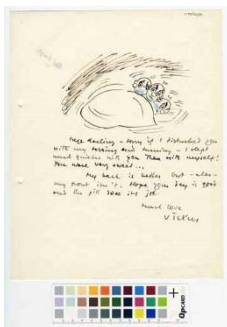 darling - Sorry if I disturbed you
with my tossing and turning - I slept
much quicker with you than with myself!
You were very sweet...
My back is better but - alas -
my snout isn't. Hope your day is good
and the pill does its job
Much love
Vicky